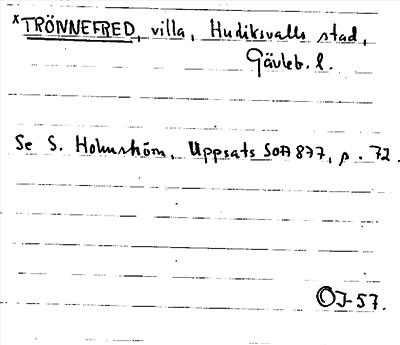 x TRÖNNEFRED, villa, Hudiksvalls stad,
Gävleb. l.
Se S. Holmström, Uppsats SOA 877, p. 72.
OJ-57.